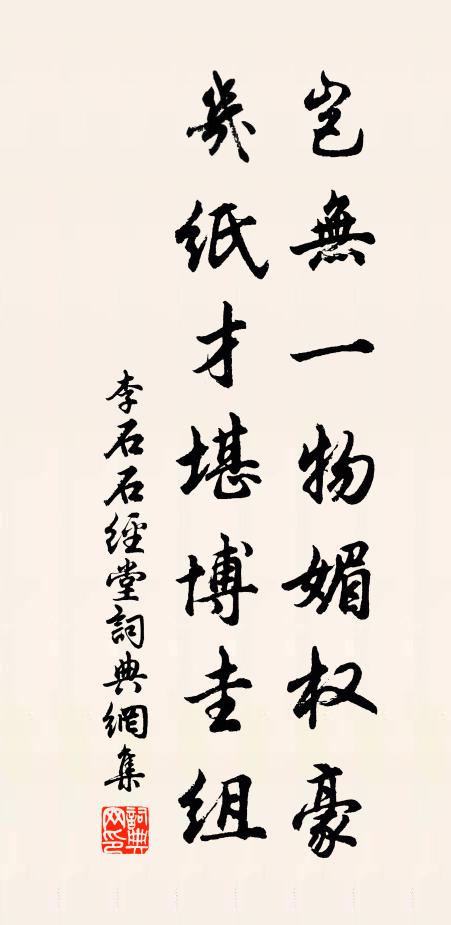 岂無一物媚权豪
幾纸才堪博圭组
李石石經堂詞典網集
詞典网印